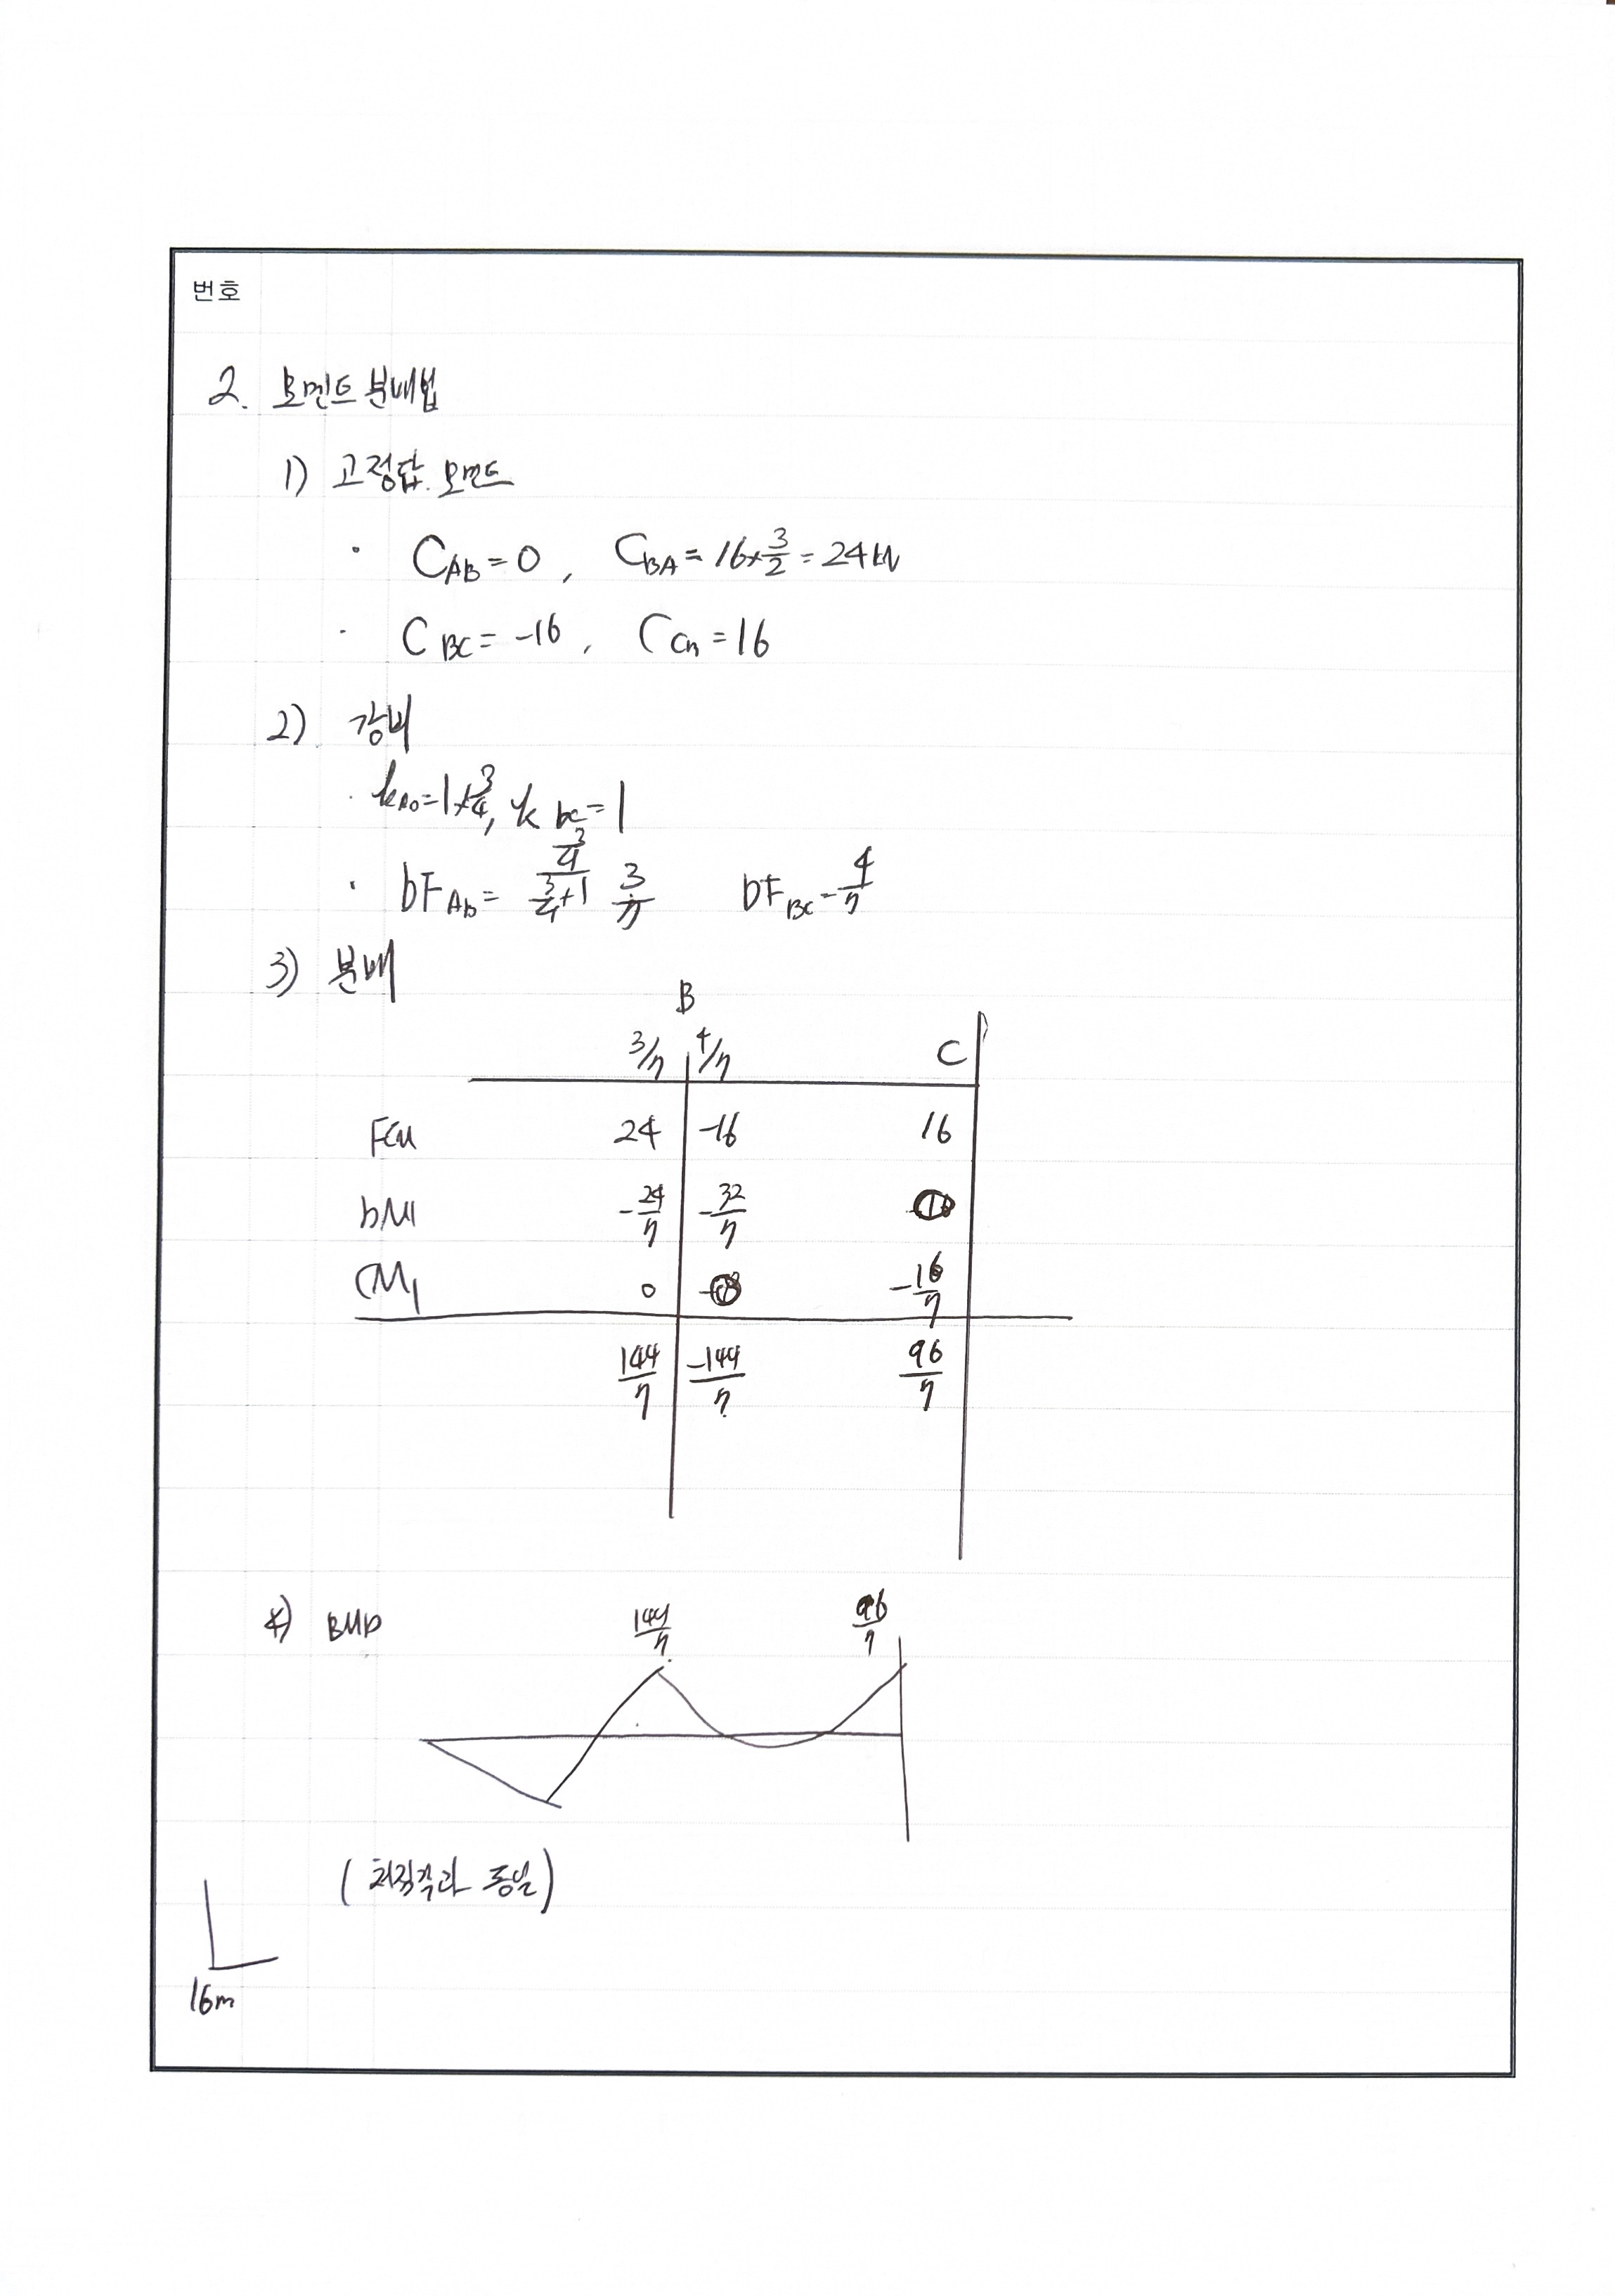 번호
2. 모멘트 분배법
1) 고정단 모멘트
· C_AB = 0 , C_BA = 16×3/2 = 24kN
· C_BC = -16 , C_CB = 16
2) 강비
· k_AB = 1×3/4, k_BC = 1
· DF_AB = (3/4)/(3/4+1) 3/7 DF_BC = 4/7
3) 분배
B
3/7 4/7 C
FEM 24 -16 16
DM1 -24/7 -32/7
CM1 0 -16/7
144/7 -144/7 96/7
4) BMD 144/7 96/7
(처짐각과 동일)
16m